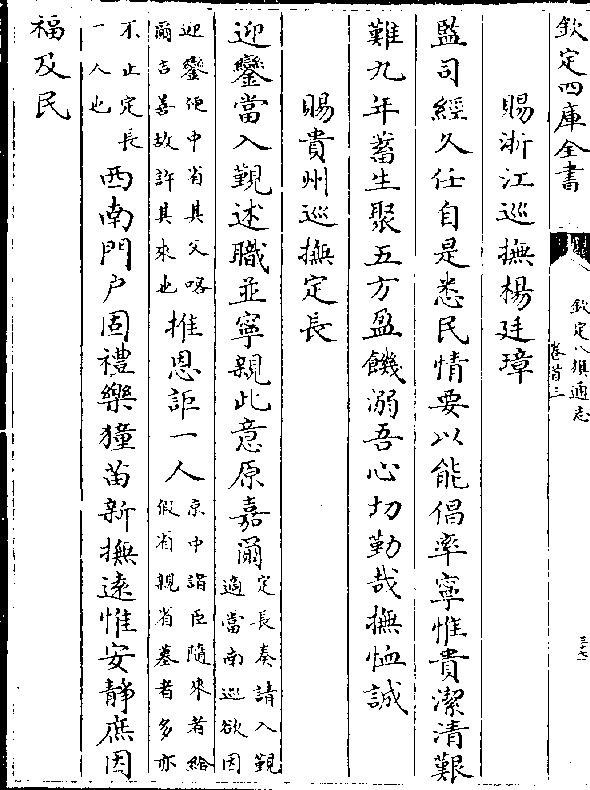 欽定四庫全書
欽定八旗通志
卷首三
三十七
賜浙江巡撫楊廷璋
監司經久任自是悉民情要以能倡率寧惟貴潔清艱
難九年蓄生聚五方盈饑溺吾心切勤哉撫恤誠
賜貴州巡撫定長
迎鑾當入覲述職並寧親此意原嘉爾定長奏請入覲適當南巡欲因
迎鑾便中省其父喀爾吉善故許其來也推恩詎一人京中諸臣隨來者給假省親省墓者多亦
不止定長一人也西南門户固禮樂獞苗新撫遠惟安靜庶因
福及民